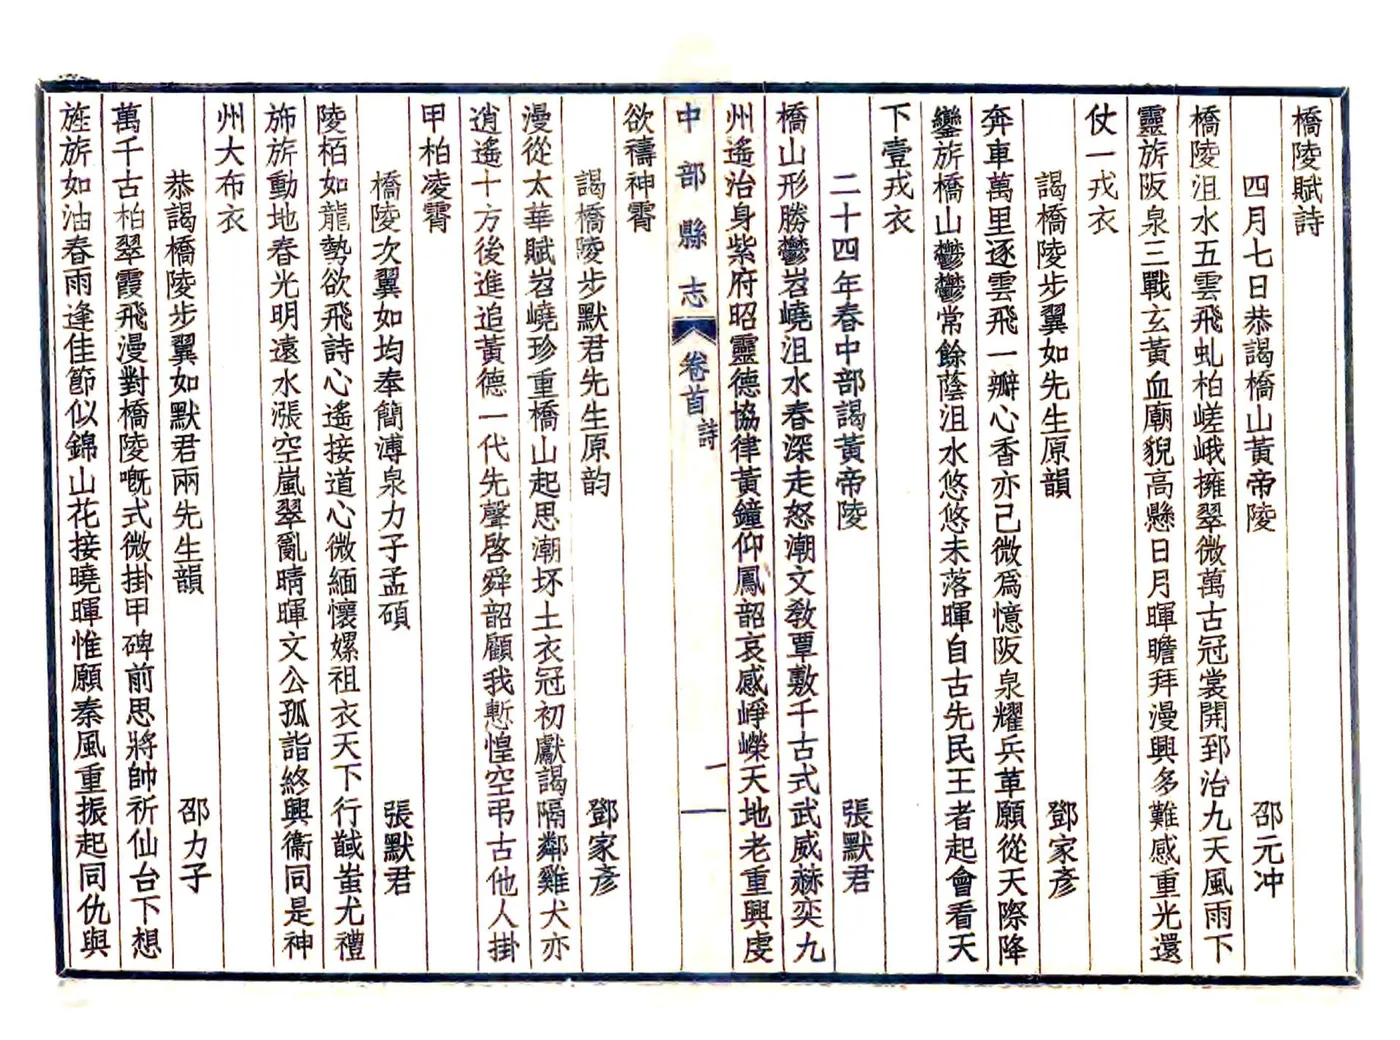 橋陵賦詩
四月七日恭謁橋山黃帝陵　邵元冲
橋陵沮水五雲飛虬柏嵯峨擁翠微萬古冠裳開郅治九天風雨下
靈旂阪泉三戰玄黃血廟貌高懸日月暉瞻拜漫興多難感重光還
仗一戎衣
謁橋陵步翼如先生原韻　鄧家彥
奔車萬里逐雲飛一瓣心香亦已微爲憶阪泉耀兵革願從天際降
鑾旂橋山鬱鬱常餘蔭沮水悠悠未落暉自古先民王者起會看天
下壹戎衣
二十四年春中部謁黃帝陵　張默君
橋山形勝鬱岧嶢沮水春深走怒潮文教覃敷千古式武威赫奕九
州遙治身紫府昭靈德協律黃鐘仰鳳韶哀感崢嶸天地老重興虔
中部縣志　卷首　詩　一
欲禱神霄
謁橋陵步默君先生原韵　鄧家彥
漫從太華賦岧嶢珍重橋山起思潮坏土衣冠初獻謁隔鄰雞犬亦
逍遙十方後進追黃德一代先聲啓舜韶顧我慙惶空弔古他人掛
甲柏凌霄
橋陵次翼如均奉簡溥泉力子孟碩　張默君
陵栢如龍勢欲飛詩心遙接道心微緬懷嫘祖衣天下行馘蚩尤禮
斾旂動地春光明遠水漲空嵐翠亂晴暉文公孤詣終興衞同是神
州大布衣
恭謁橋陵步翼如默君兩先生韻　邵力子
萬千古柏翠霞飛漫對橋陵嘅式微掛甲碑前思將帥祈仙台下想
旌旂如油春雨逢佳節似錦山花接曉暉惟願秦風重振起同仇與